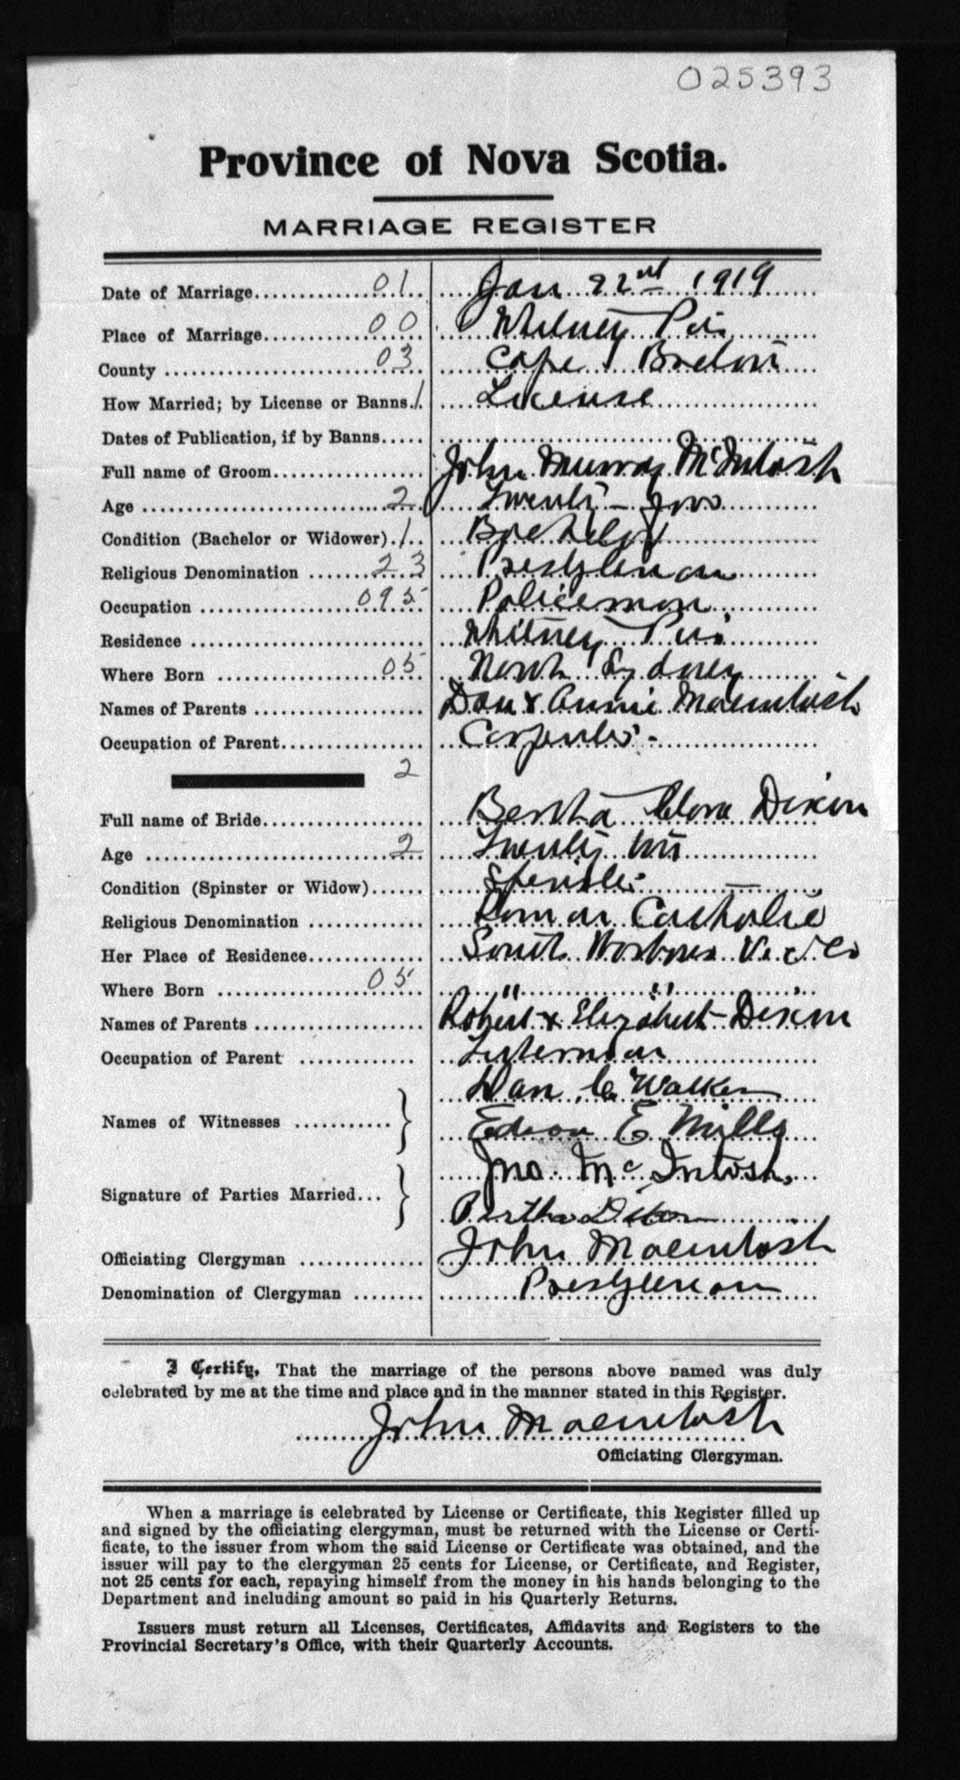 025393
Province of Nova Scotia.
MARRIAGE REGISTER
Date of Marriage 01 Jan 22nd 1919
Place of Marriage 00 Whitney Pier
County 03 Cape Breton
How Married; by License or Banns 1 License
Dates of Publication, if by Banns
Full name of Groom John Murray McIntosh
Age 2 Twenty-two
Condition (Bachelor or Widower) 1 Bachelor
Religious Denomination 23 Presbyterian
Occupation 095 Policeman
Residence Whitney Pier
Where Born 05 North Sydney
Names of Parents Dan & Annie Macintosh
Occupation of Parent Carpenter
2
Full name of Bride Bertha Clora Dixon
Age 2 Twenty
Condition (Spinster or Widow) Spinster
Religious Denomination Roman Catholic
Her Place of Residence South
Where Born 05 " "
Names of Parents Robert & Elizabeth Dixon
Occupation of Parent
Dan C Walker
Names of Witnesses
Edson E Mills
Jno. McIntosh.
Signature of Parties Married
Bertha Dixon
Officiating Clergyman John Macintosh
Denomination of Clergyman Presbyterian
I Certify, That the marriage of the persons above named was duly
celebrated by me at the time and place and in the manner stated in this Register.
John Macintosh
Officiating Clergyman.
When a marriage is celebrated by License or Certificate, this Register filled up
and signed by the officiating clergyman, must be returned with the License or Certi-
ficate, to the issuer from whom the said License or Certificate was obtained, and the
issuer will pay to the clergyman 25 cents for License, or Certificate, and Register,
not 25 cents for each, repaying himself from the money in his hands belonging to the
Department and including amount so paid in his Quarterly Returns.
Issuers must return all Licenses, Certificates, Affidavits and Registers to the
Provincial Secretary's Office, with their Quarterly Accounts.